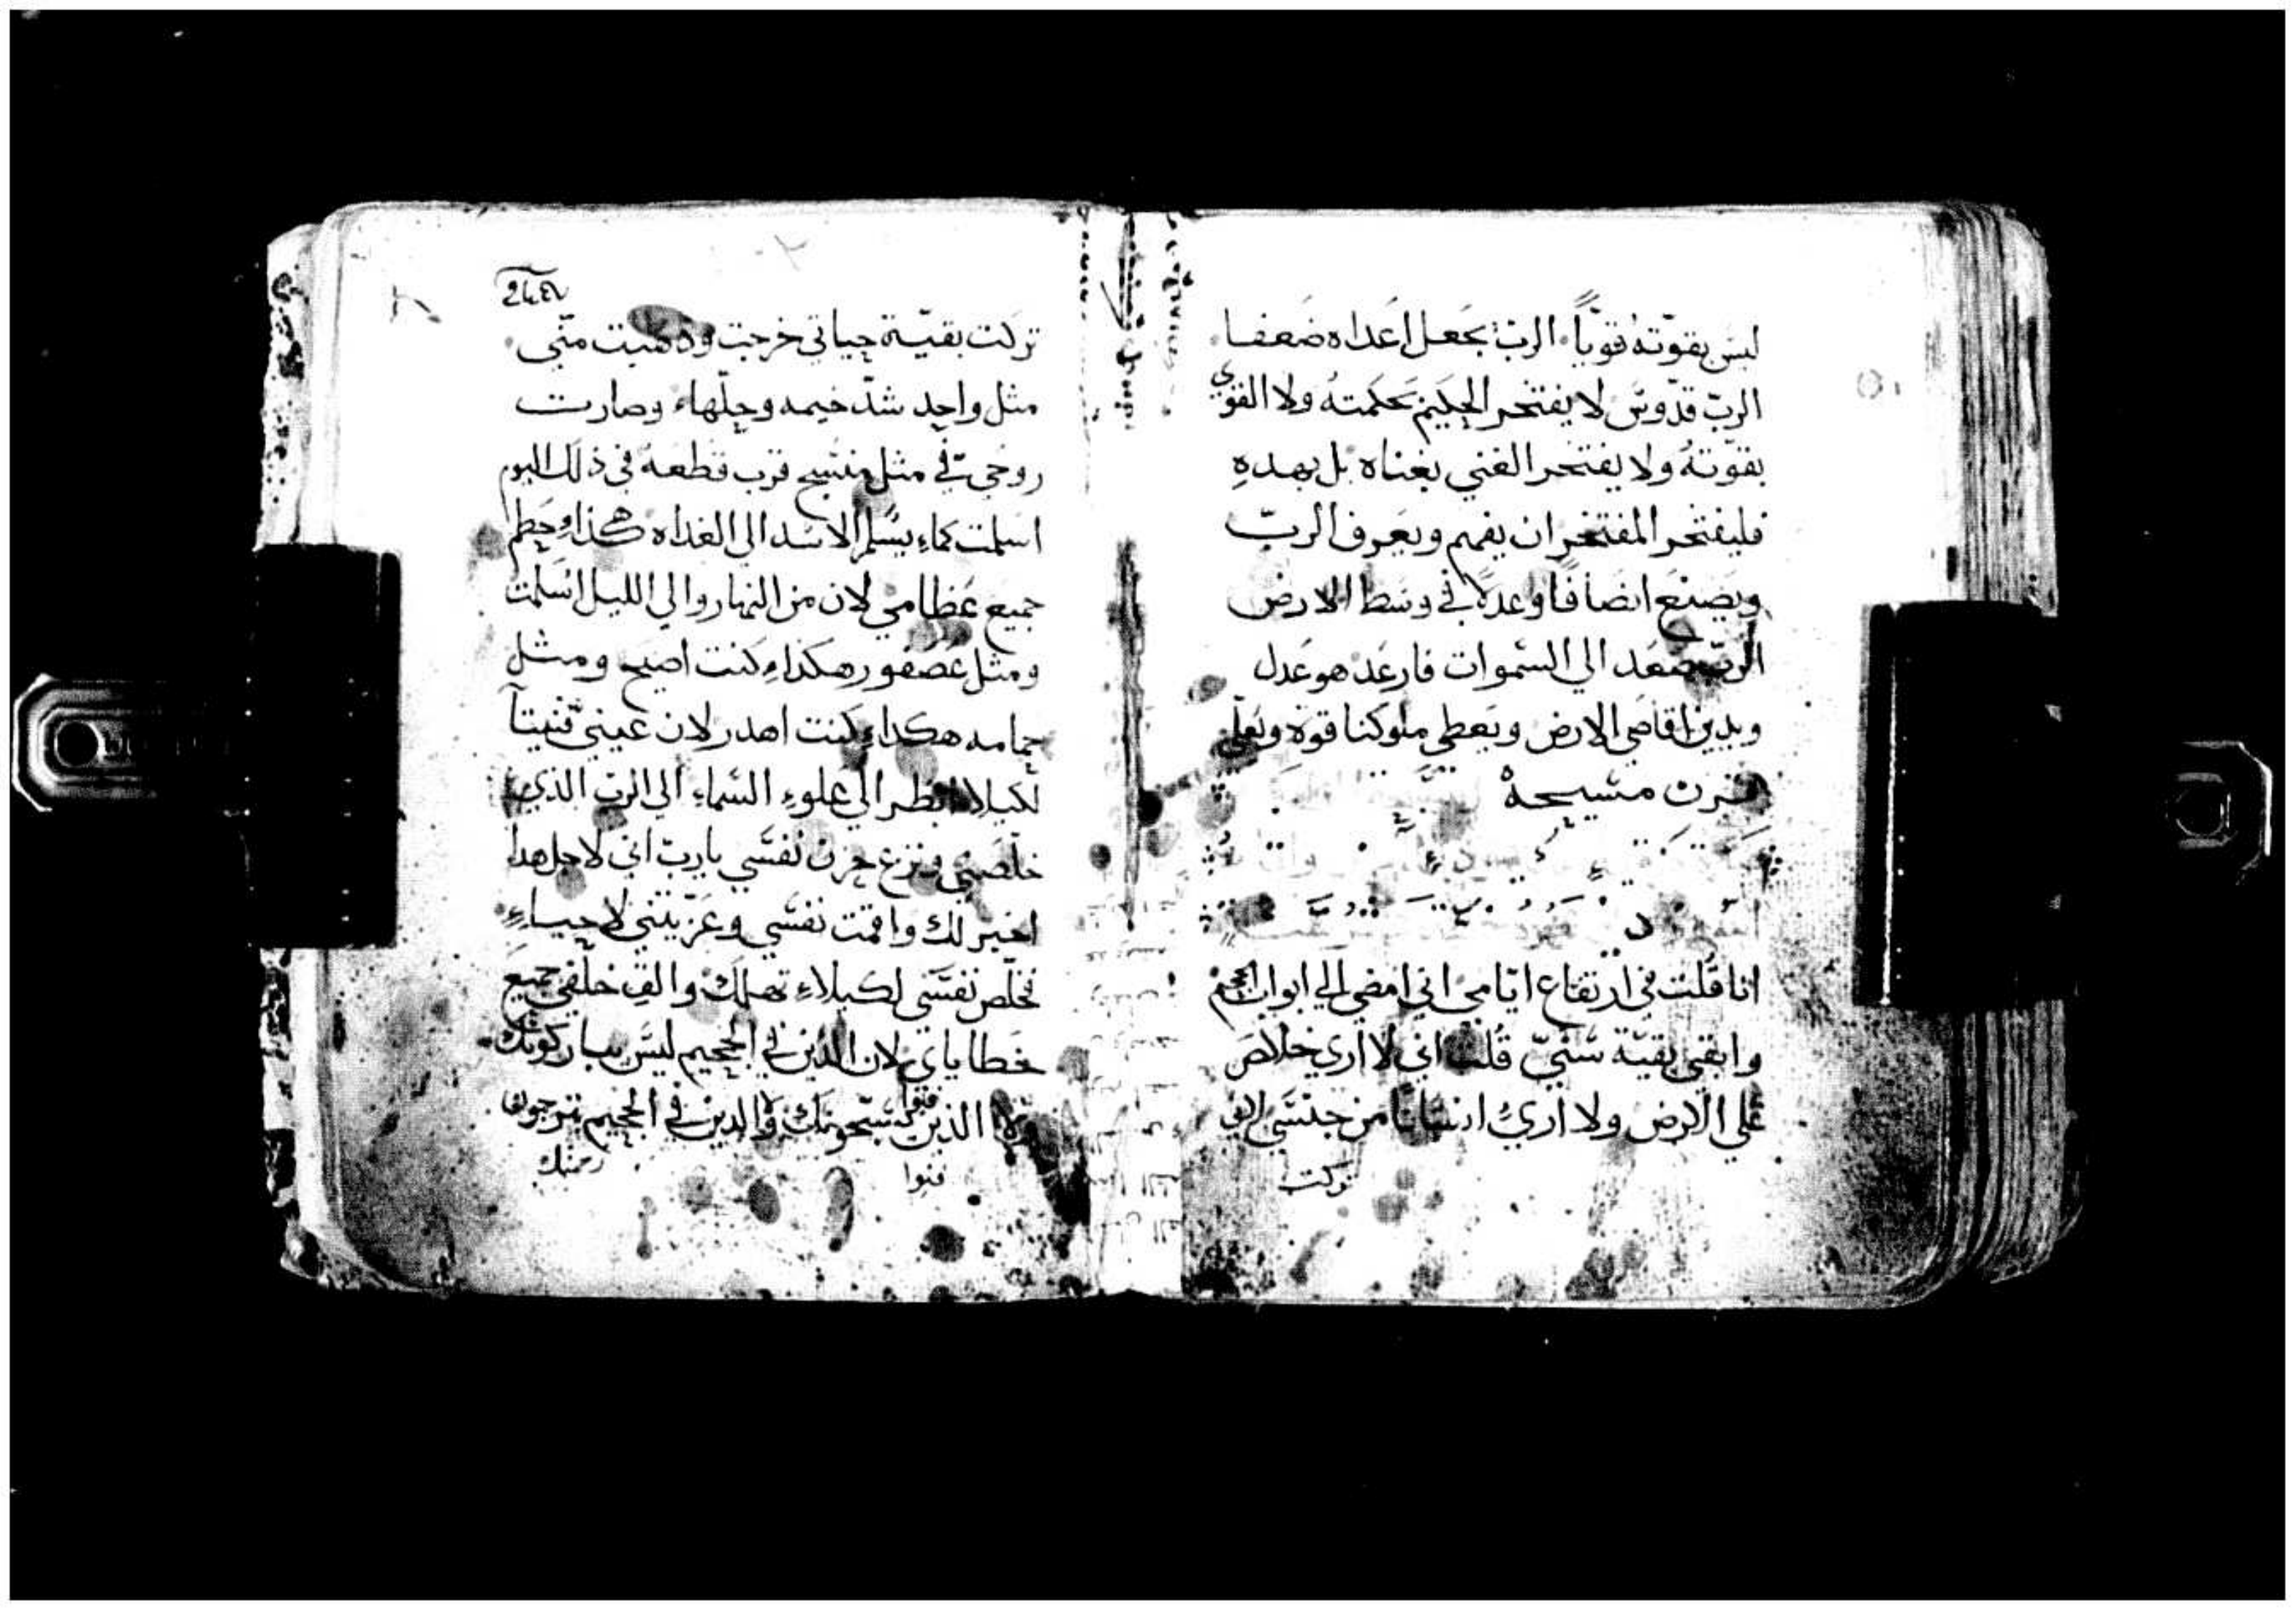 ليس بقوّته قويّاً. الربّ يجعل اعداه ضعفا.
الربّ قدّوس لا يفتخر الحكيم بحكمته ولا القوي
بقوّته ولا يفتخر الغني بغناه بل بهده
فليفتخر المفتخر ان يفهم ويعرف الربّ
ويصنع انصافاً وعدلاً في وسط الارض
الربّ صعد الي السموات فارعد هو عدل
ويدين اقاصي الارض ويعطي ملوكنا قوة ويعلّي
قرن مسيحه
انا قلت في ارتفاع ايّامي اني امضي الي ابواب الجحيم
وابقي بقيّة سنيّ قلت اني لا اري خلاص
علي الارض ولا اري انسانا من جنسي لاني
تركت
تركت بقيّة حياتي خرجت ودهبت منّي.
مثل واحد شدّ خيمه وحلّها وصارت
روحي فيّ مثل منسج قرب قطعه في ذلك اليوم
اسلمت كما يسلم الاسد الي الغداه هكذا حطم
جميع عظامي لان من النهار والي الليل اسلمت
ومثل عصفور هكدا كنت اصيح ومثل
حمامه هكدا كنت اهدر لان عينيّ فنيتا
لكيلا انظر الي علوء السماء الي الرب الذي
خلّصني ونزع حزن نفسي يا ربّ اني لاجل هدا
اخبر لك واقمت نفسي وعزّيتني لاحيا
تخلّص نفسي لكيلاء تهلك والق خلفي جميع
خطاياي لان الذين في الجحيم ليس يباركونك
ولا الذين فنوا يسبّحونك والدين في الجحيم يترجون
فنوا
رحمتك